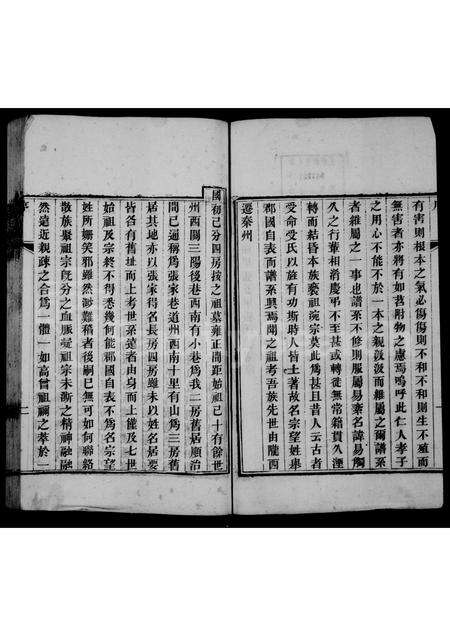 有害則根本之氣必傷傷則不和不和則生不殖而
無害者亦將有如苕附物之慮焉嗚呼此仁人孝子
之用心不能不於一本之親汲汲而維屬之爾譜系
者維屬之一事也譜系不修則服屬易紊名諱易觸
久之行輩相淆慶弔不至甚或轉徙無常籍貫久湮
轉而結昏本族褻祖瀆宗莫此為甚且昔人云古者
受命受氏以旌有功斯時人皆土著故名宗望姓舉
郡國自表而譜系興焉聞之祖考吾族先世由隴西
遷秦州
國初己分四房按之祖墓雍正間距始祖已十有餘世
州西關三陽後巷西南有小巷為我二房舊居順治
間已通稱為張家巷道州西南十里有山為三房舊
居其地亦以張家得名長房四房雖未以姓名居要
皆各有舊址而上考世系遠者由身而上僅及七世
始祖及宗終不得悉幾何能郡國自表不為名宗望
姓所嫺笑邪雖然渺難稽者後嗣已無可如何聯絡
散族聚祖宗既分之血脈凝祖宗未澌之精神融融
然遠近親疎之合為一體一如高曾祖禰之萃於一
序
二